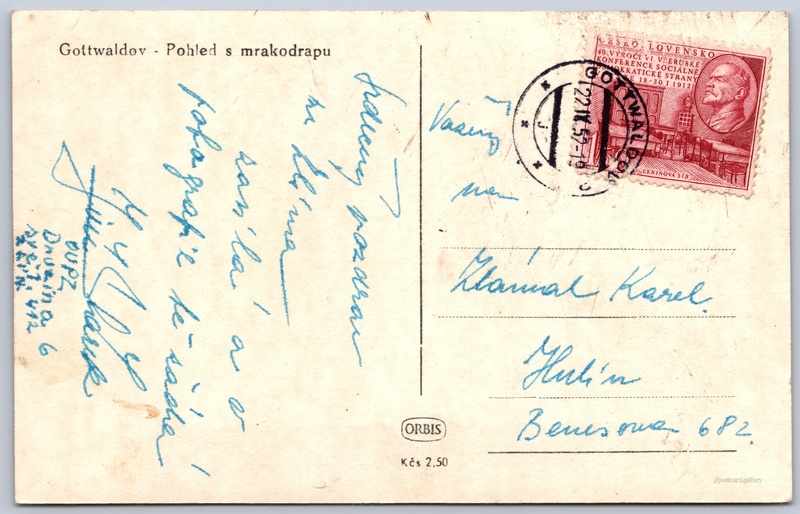 Gottwaldov - Pohled s mrakodrapu
Srdečný pozdrav
ze Zlína
zasílá a o
fotografie se sádhá
Jiří
OUPZ
Družina 6
412
ORBIS
Kčs 2,50
ČESKOSLOVENSKO
40. VÝROČÍ VI. VŠERUSKÉ
KONFERENCE SOCIÁLNĚ
DEMOKRATICKÉ STRANY
18-30 I 1912
LENINOVA SÍŇ
GOTTWALDOV
22.IX.52-18
Vážený
pan
Zlámal Karel.
Hulín
Benesova 682.
@postcard.gallery